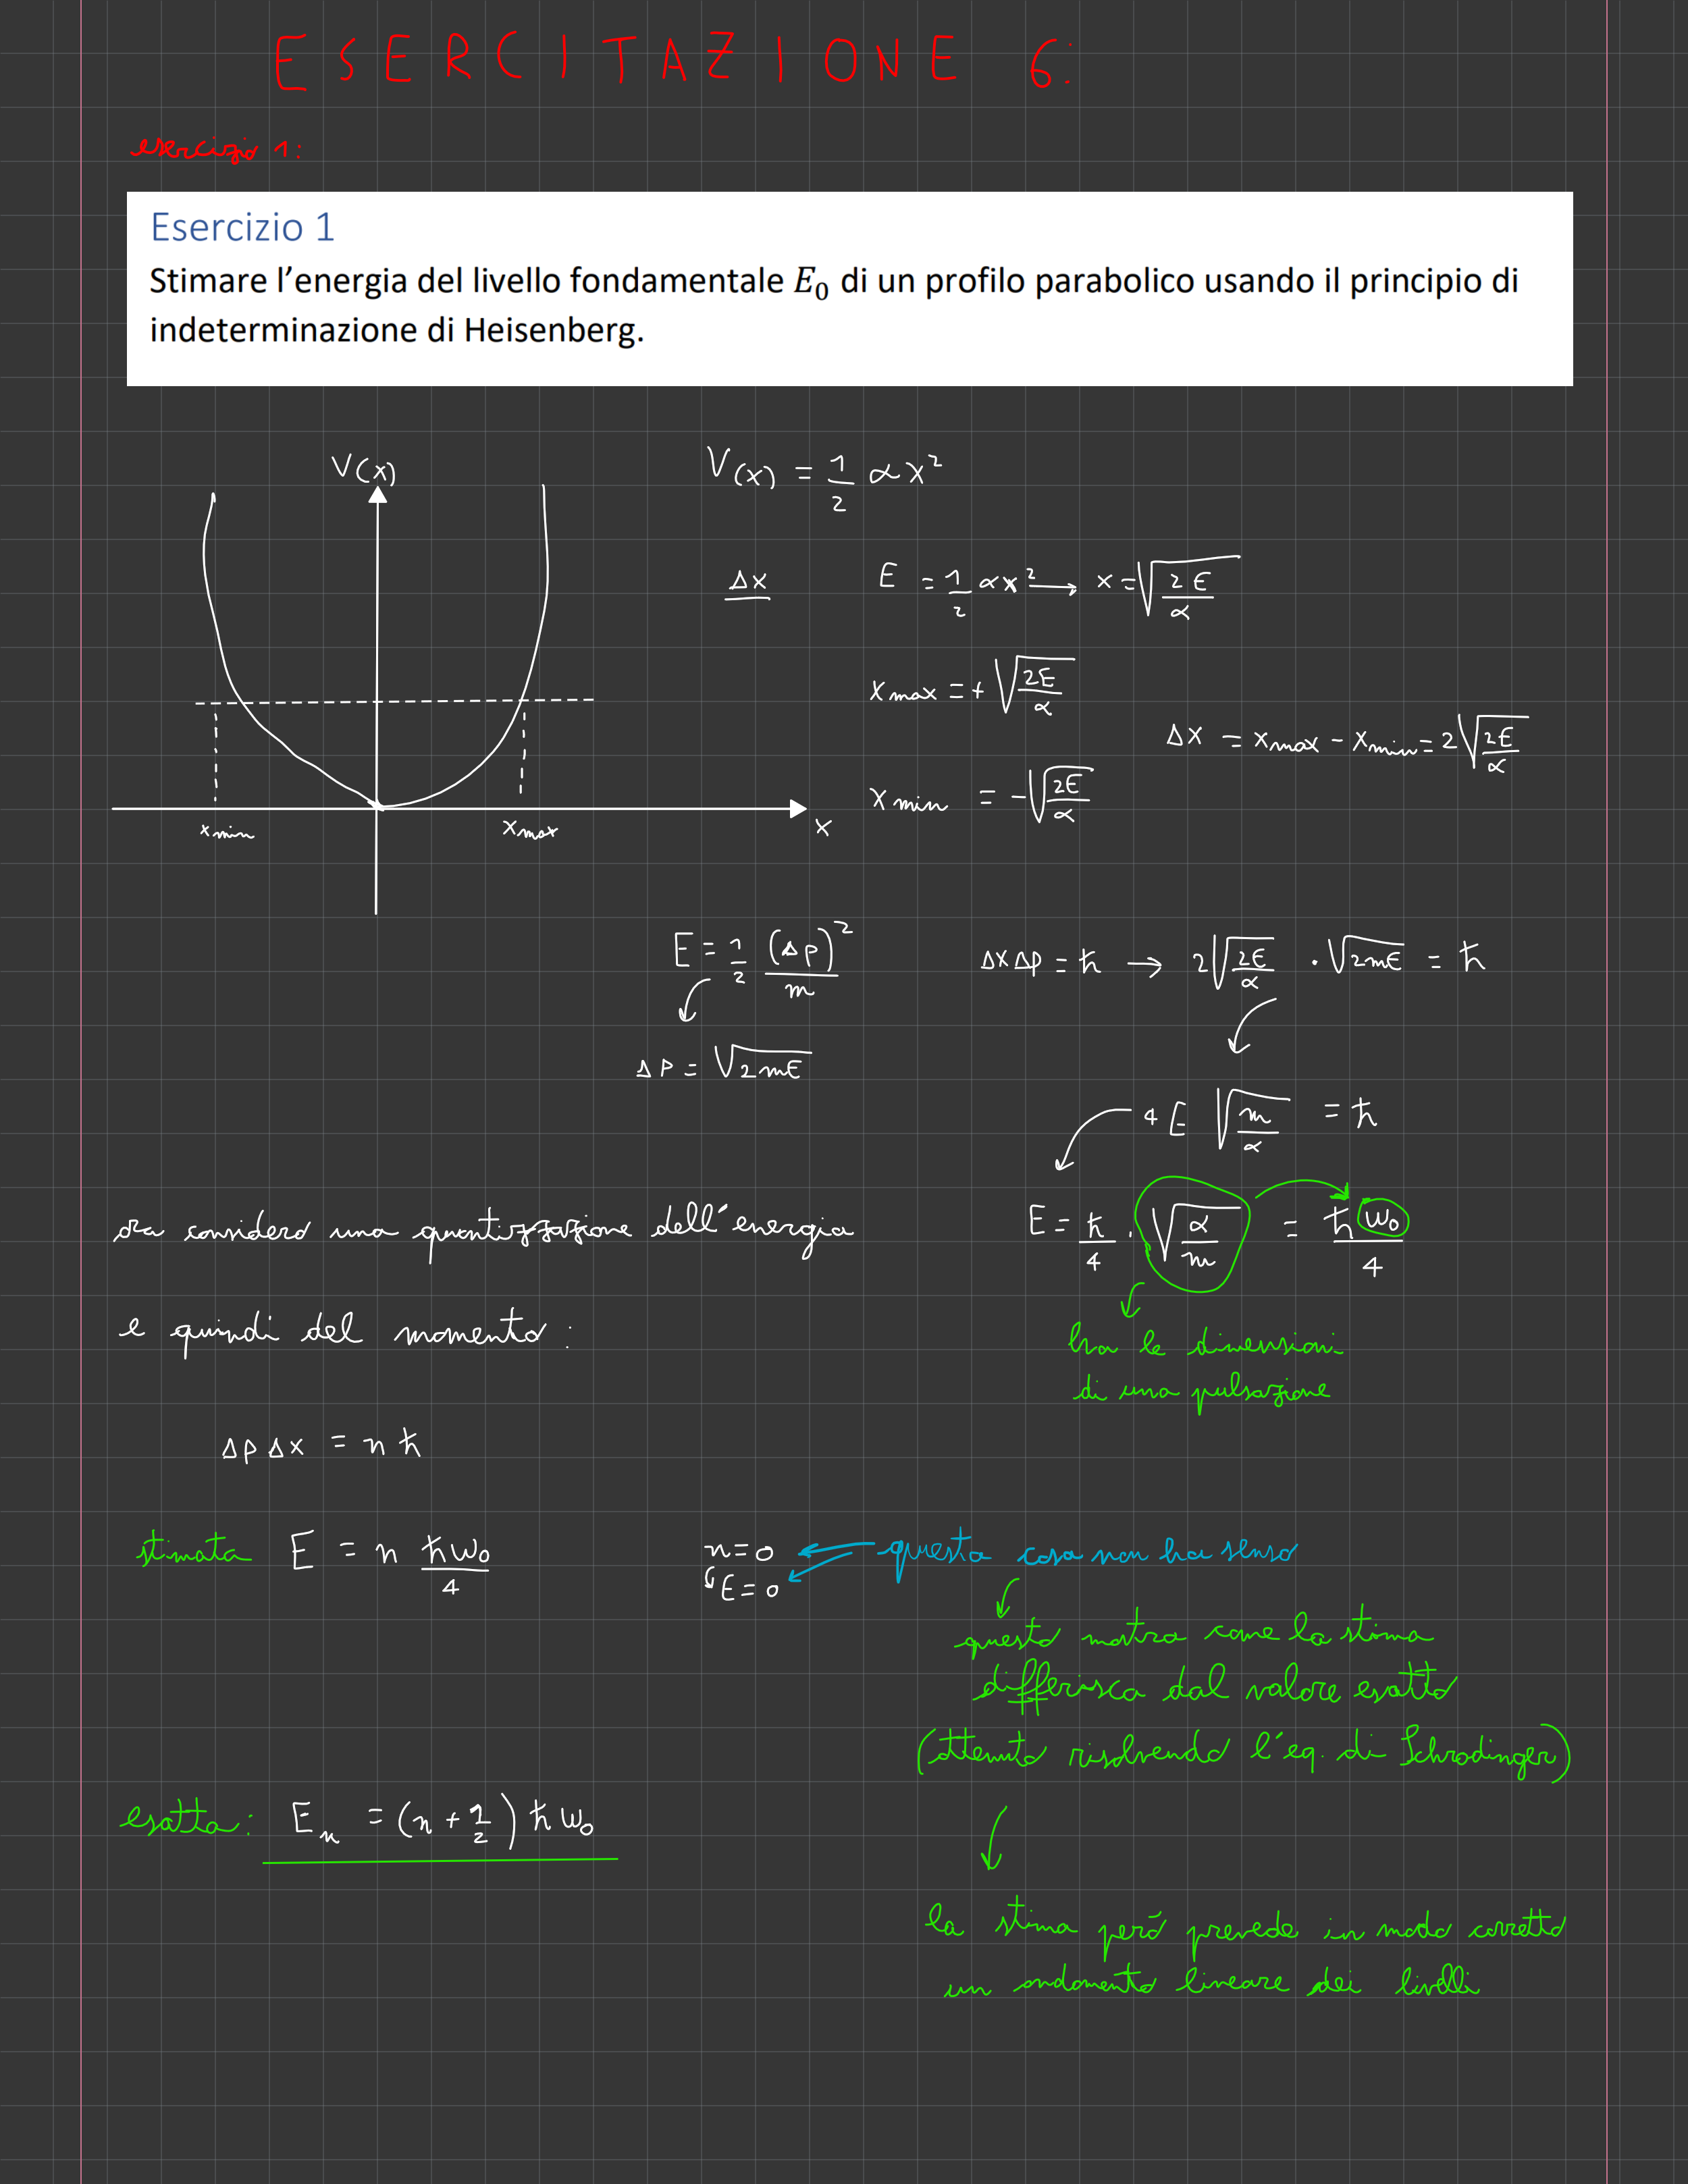 ESERCITAZIONE 6:
esercizio 1:
Esercizio 1
Stimare l'energia del livello fondamentale E₀ di un profilo parabolico usando il principio di
indeterminazione di Heisenberg.
V(x)
V(x) = 1/2 α x²
Δx
E = 1/2 αx² → x = √(2E/α)
x max = + √(2E/α)
Δx = xmax - xmin = 2√(2E/α)
x min = - √(2E/α)
xmin
xmax
x
E = 1/2 (Δp)²/m
ΔxΔp = ħ → 2√(2E/α) · √(2mE) = ħ
Δp = √(2mE)
4E √(m/α) = ħ
ora considero una quantizzazione dell'energia
E = ħ/4 · √(α/m) = ħω₀/4
e quindi del momento:
ha le dimensioni
di una pulsazione
ΔpΔx = nħ
stimata E = n ħω₀/4
n=0
E=0
questa cosa non ha senso
questo mostra come la stima
differisca dal valore esatto
(ottenuto risolvendo l'eq. di Schrodinger)
esatta: En = (n + 1/2) ħω₀
la stima però prevede in modo corretto
un andamento lineare dei livelli